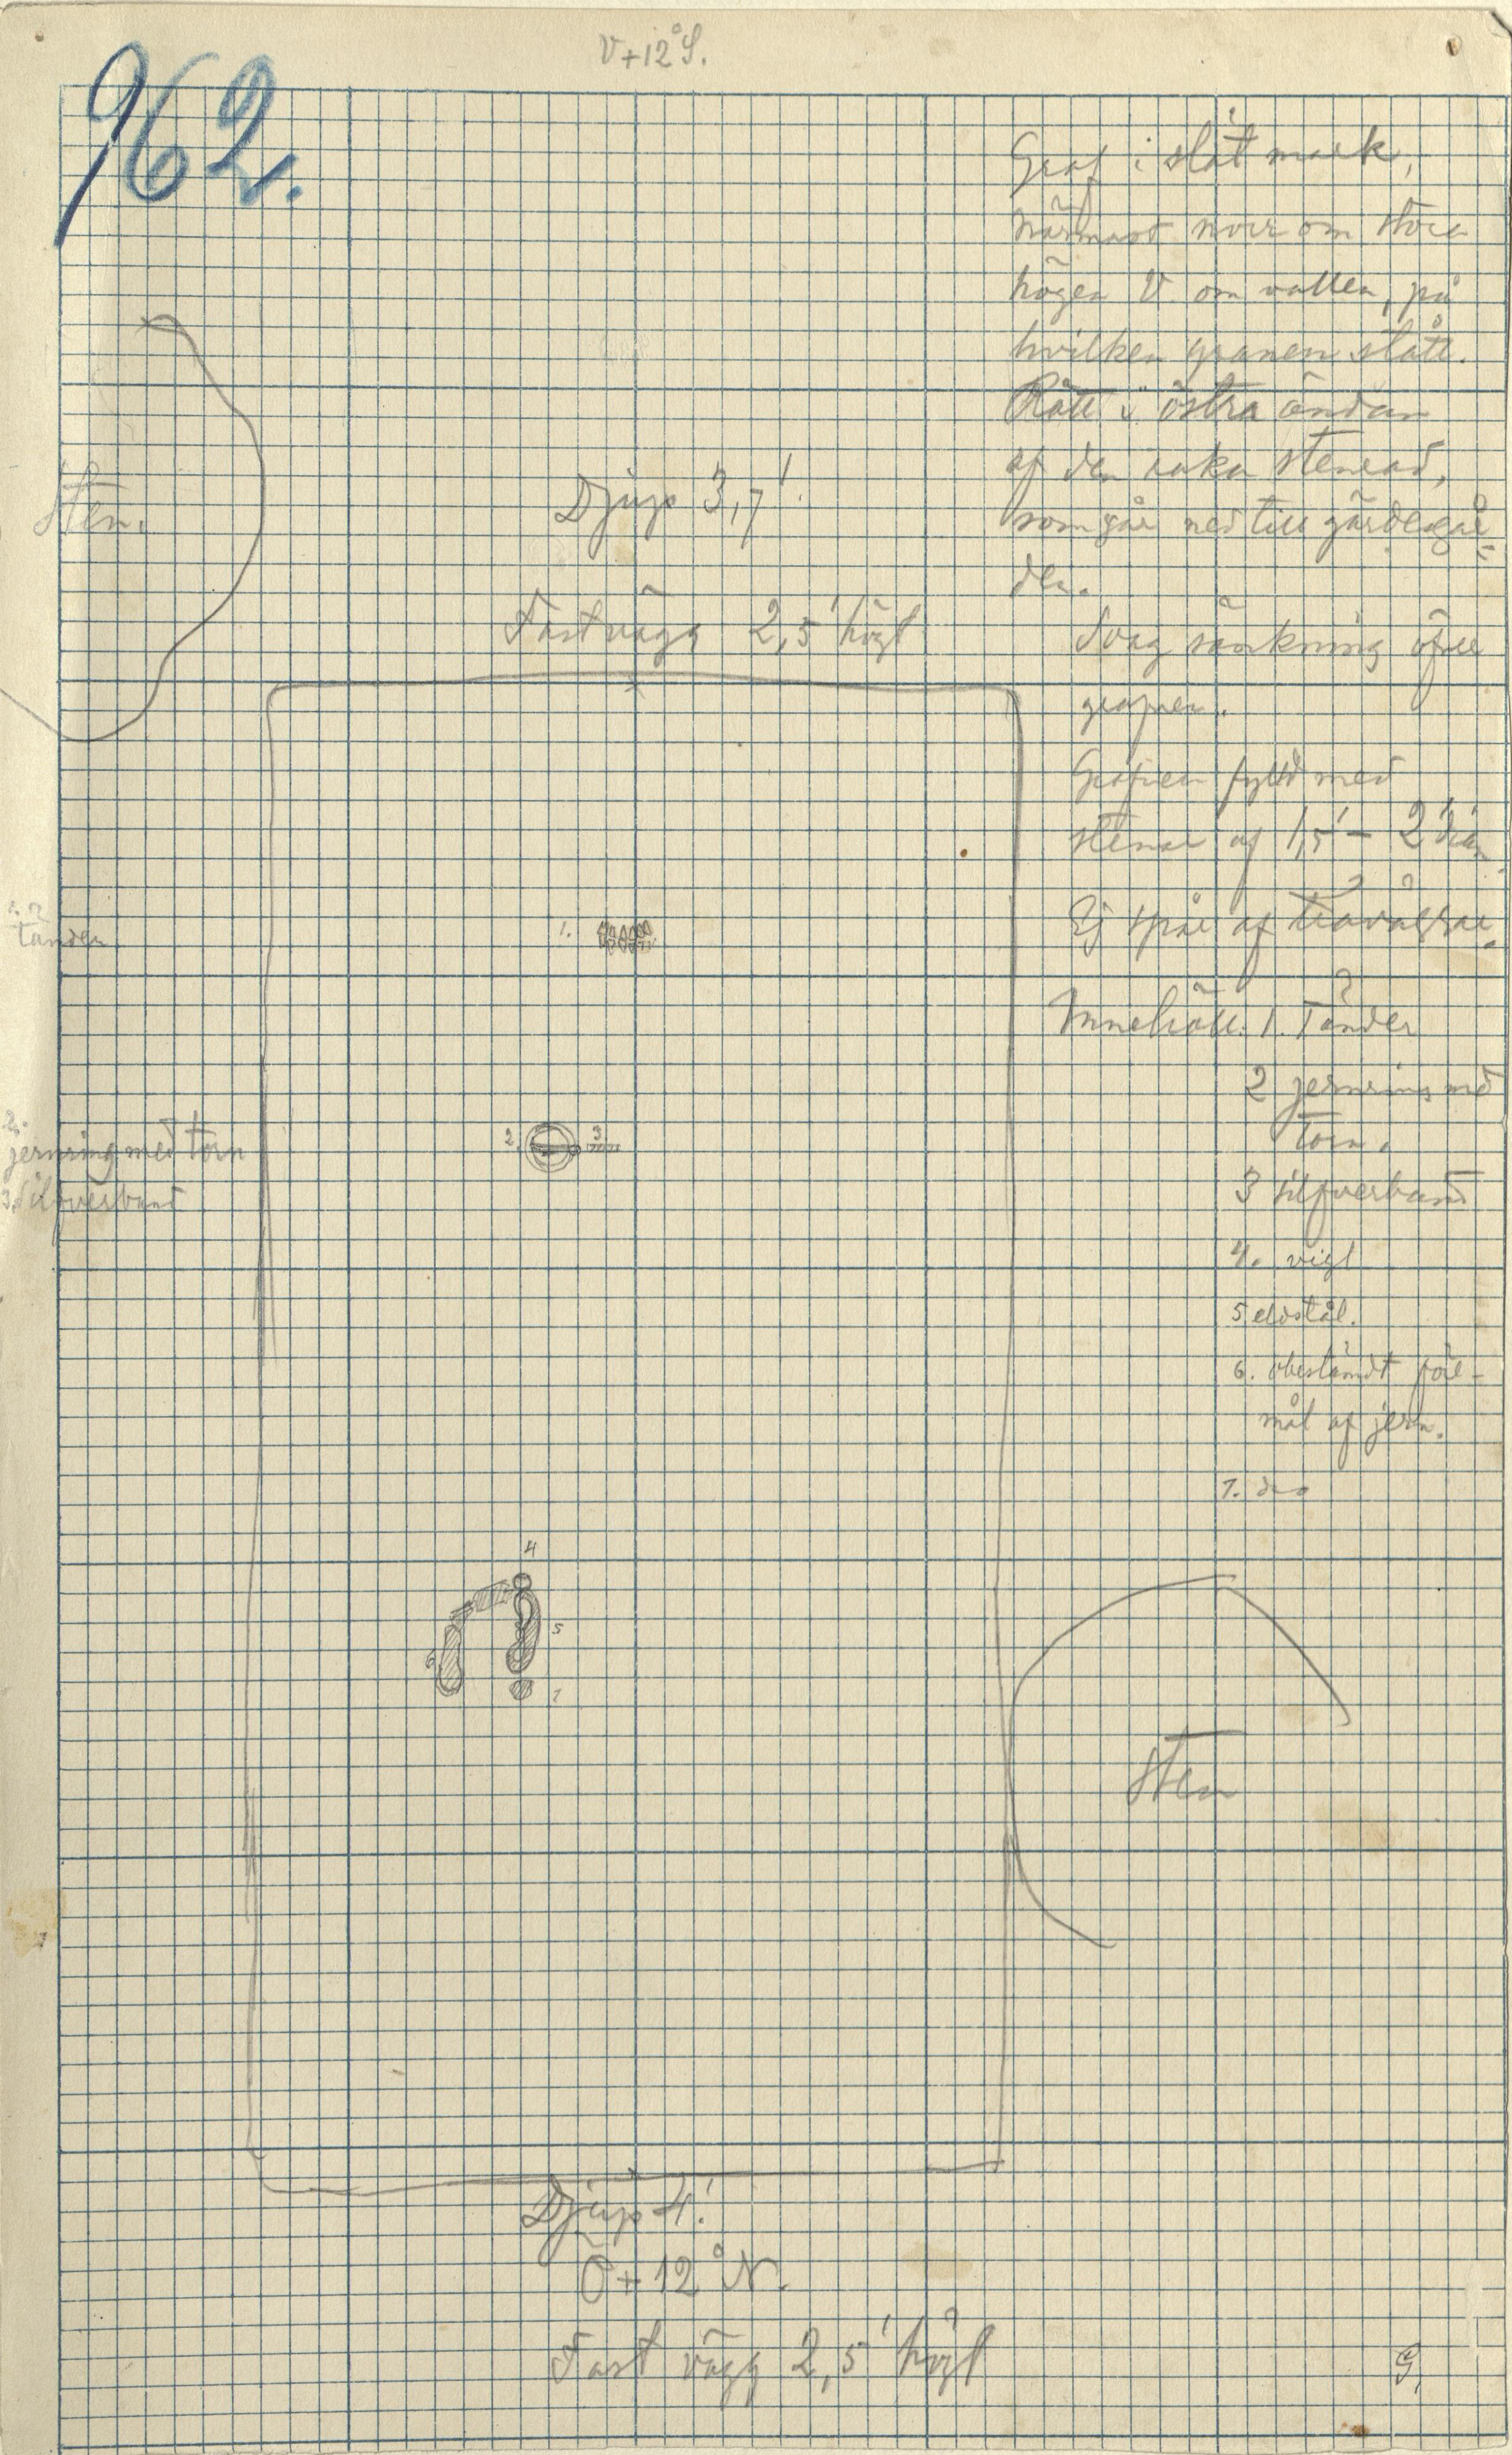 V+12°S.
962.
Graf i slät mark,
närmast norr om stora
högen V. om vallen, på
hvilken granen stått.
Rätt i östra ändan
af den raka stenrad,
som går ned till gärdesgår-
den.
Svag sänkning öfver
grafven.
Grafven fylld med
stenar af 1,5' – 2' diam.
Ej spår af träväggar.
Innehåll: 1. Tänder
2 jernring med
torn.
3 silfverband
4. vigt
5 eldstål.
6. obestämdt före-
mål af jern.
7. do
Sten.
Djup 3,7'.
Fast vägg 2,5' högt
1.
tänder
1.
2.
jernring med torn
3. Silfverband
2. 3
4
5
6
7
Sten
Djup 4'.
Ö+12°N.
Fast vägg 2,5' högt
G.